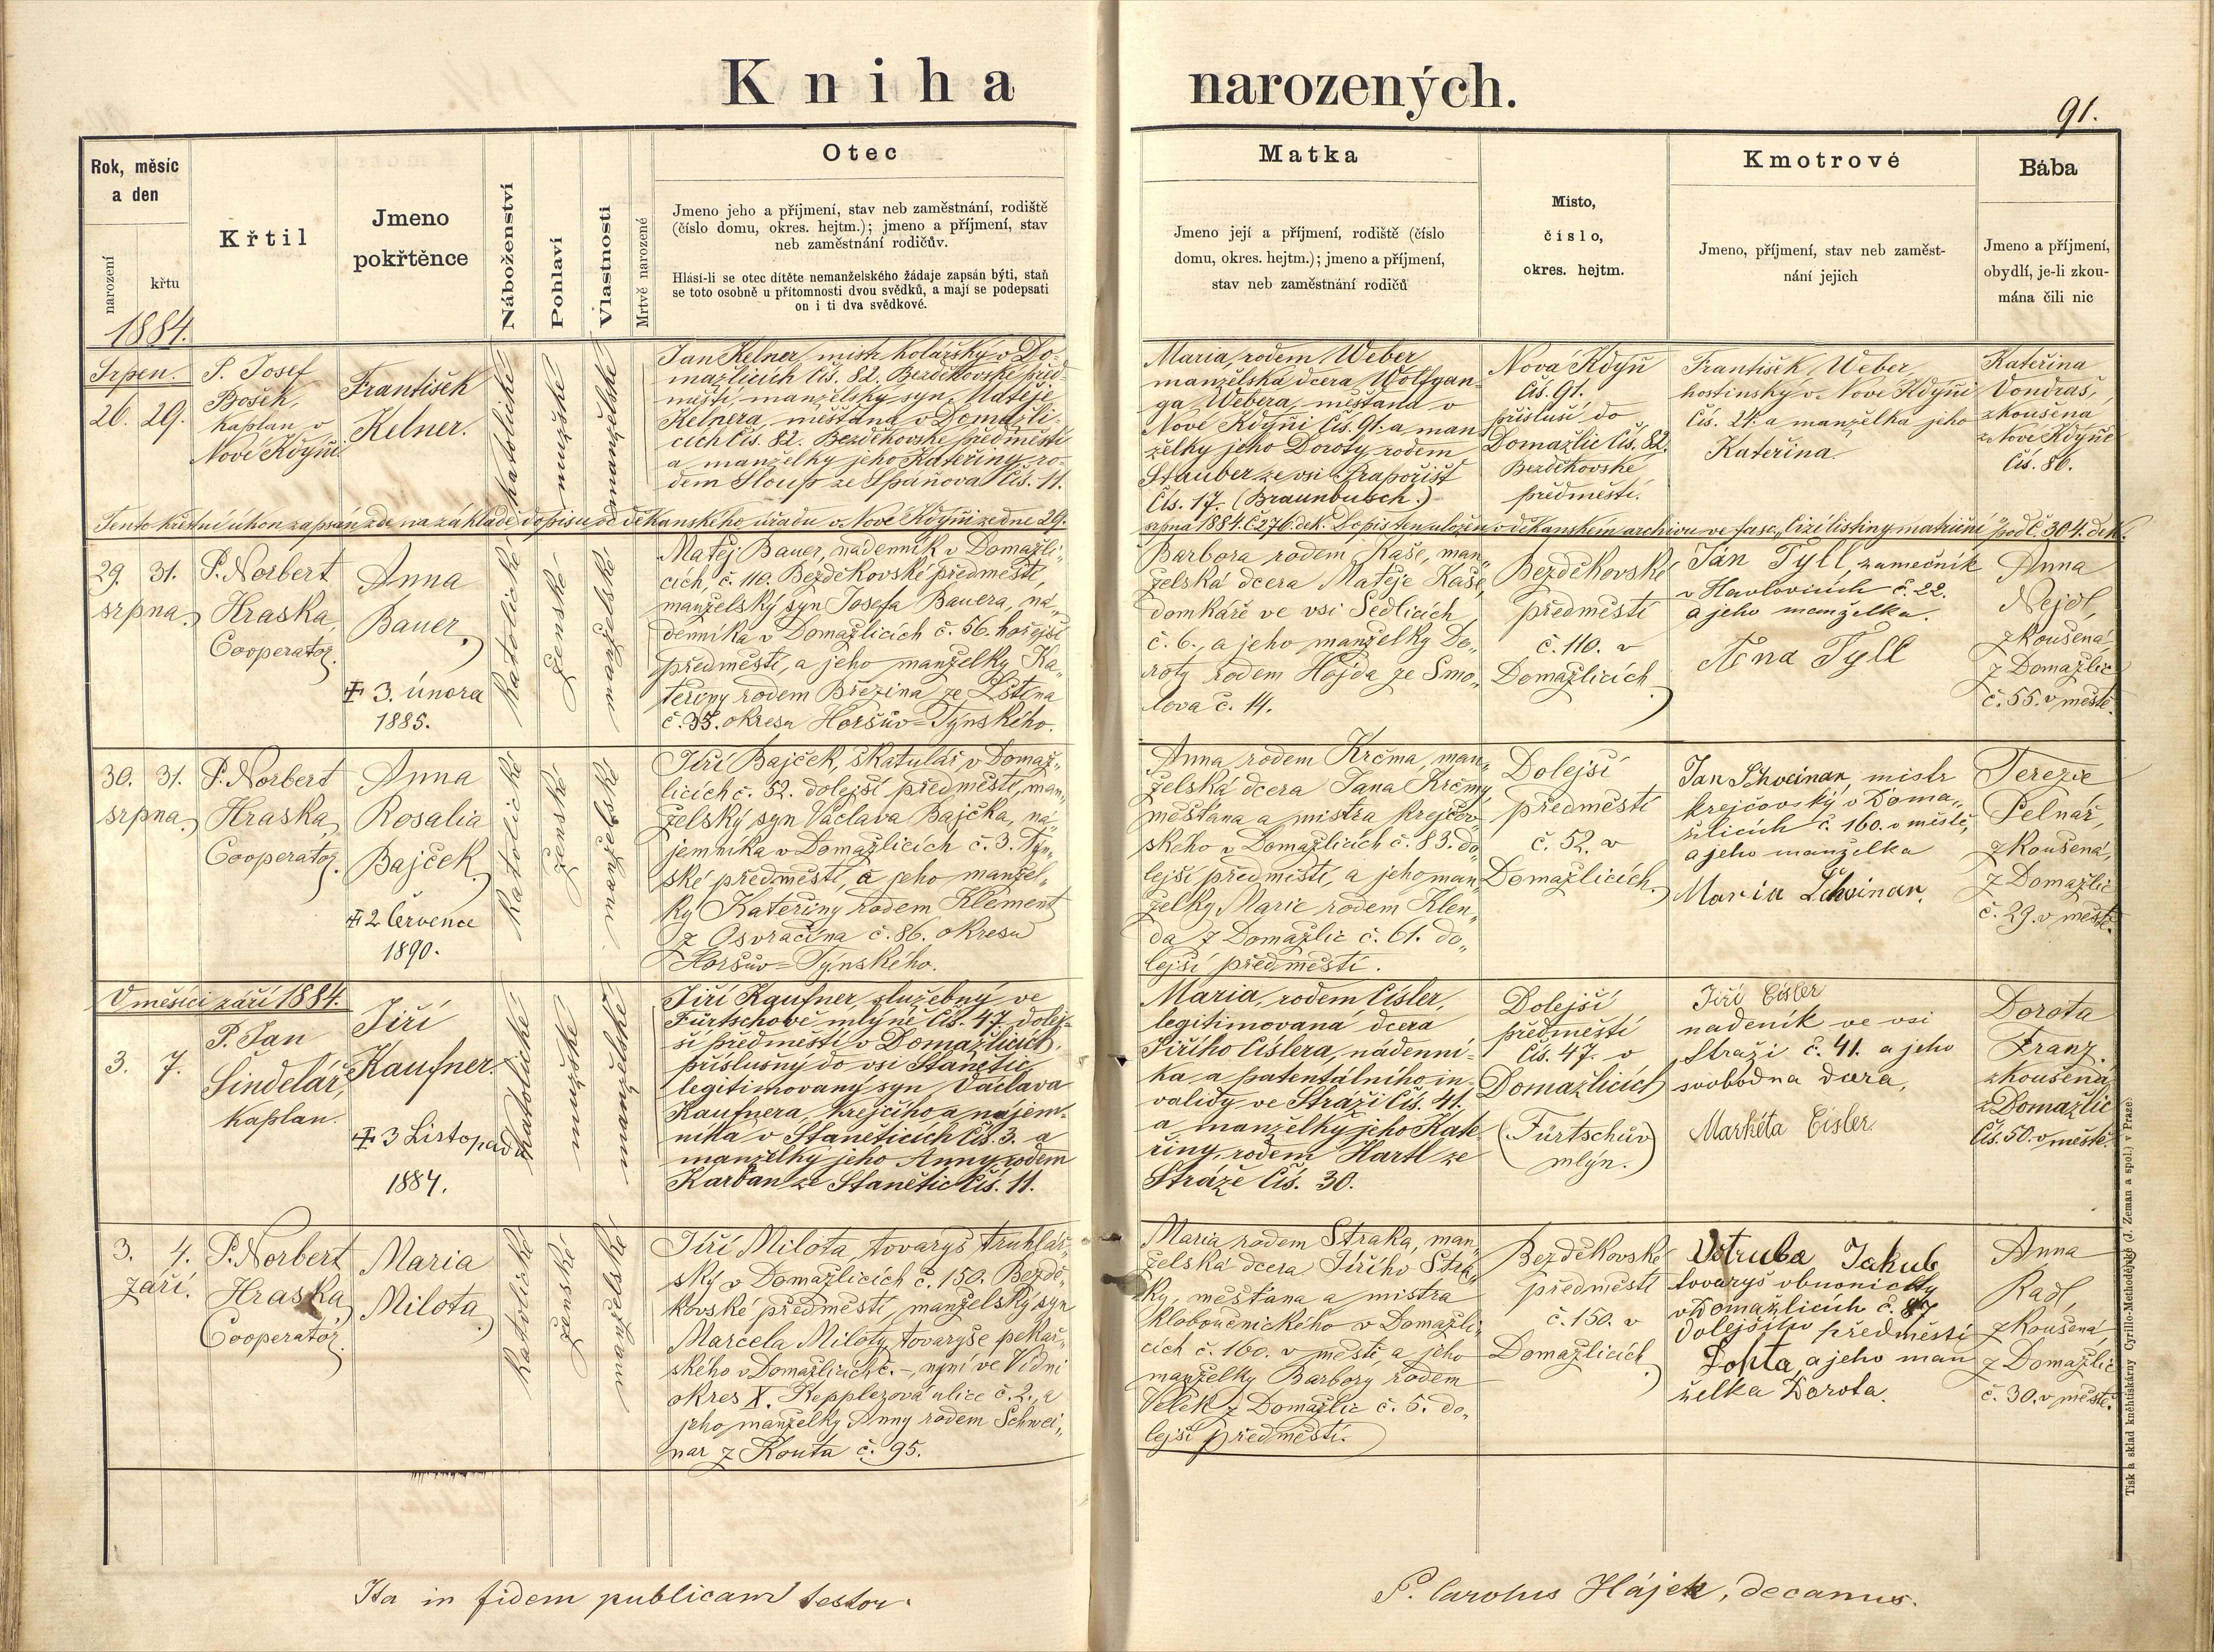 Kniha narozených.
91.
Rok, měsíc
a den
narození
křtu
Křtil
Jmeno
pokřtěnce
Náboženství
Pohlaví
Vlastnosti
Mrtvě narozené
Otec
Jmeno jeho a příjmení, stav neb zaměstnání, rodiště
(číslo domu, okres. hejtm.); jmeno a příjmení, stav
neb zaměstnání rodičův.
Hlásí-li se otec dítěte nemanželského žádaje zapsán býti, staň
se toto osobně u přítomnosti dvou svědků, a mají se podepsati
on i ti dva svědkové.
Matka
Jmeno její a příjmení, rodiště (číslo
domu, okres. hejtm.); jmeno a příjmení,
stav neb zaměstnání rodičů
Misto,
číslo,
okres. hejtm.
Kmotrové
Jmeno, příjmení, stav neb zaměst-
nání jejich
Bába
Jmeno a příjmení,
obydlí, je-li zkou-
mána čili nic
1884.
Srpen.
26. 29.
P. Josef
Bošek,
kaplan v
Nové Kdyňi
František
Kelner.
katolické
mužské
manželské
Jan Kelner, mistr kolářský v Do-
mažlicích čís. 82. Bezděkovské před
městí, manželský syn Matěje
Kelnera, měšťana v Domažli-
cích čís. 82. Bezděkovské předměstí
a manželky jeho Kateřiny, ro-
dem Sloup ze Spáňova čís. 11.
Maria, rodem Weber
manželská dcera Wolfgan-
ga Webera, měšťana v
Nové Kdyňi čís. 91. a man
želky jeho Doroty, rodem
Stauber ze vsi Prapořišť
čís. 17. (Braunbusch.)
Nová Kdyň
čís. 91.
přísluší do
Domažlic čís. 82.
Bezděkovské
předměstí.
František Weber,
hostinský v Nové Kdyňi
čís. 24. a manželka jeho
Kateřina.
Kateřina
Vondraš,
zkoušená
z Nové Kdyňe
čís. 86.
Tento křestní úkon zapsán zde na základě dopisu od děkanského úřadu v Nové Kdyňi ze dne 29.
srpna 1884. č. 276. dek. Dopis ten uložen v děkanském archivu ve fasc. „Cizí listiny matriční“ podč. 304. dek.
29. 31.
srpna.
P. Norbert
Hraska,
Cooperator.
Anna
Bauer.
‡ 3. února
1885.
katolické
ženské
manželské
Matěj Bauer, nádenník v Domažli-
cích, č. 110. Bezděkovské předměstí,
manželský syn Josefa Bauera, ná-
denníka v Domažlicích č. 56. hořejší
předměstí, a jeho manželky Ka-
teřiny rodem Březina ze Lštěna
č. 35. okresu Horšův=Týnského.
Barbora rodem Kaše, man-
želská dcera Matěje Kaše,
domkáře ve vsi Sedlicích
č. 6., a jeho manželky Do-
roty rodem Hojda ze Smo-
lova č. 14.
Bezděkovské
předměstí
č. 110. v
Domažlicích
Jan Tyll, zamečník
v Havlovicích č. 22.
a jeho manželka.
Anna Tyll
Anna
Nejdl,
zkoušená
z Domažlic
č. 55. v městě.
30. 31.
srpna.
P. Norbert
Hraska,
Cooperator.
Anna
Rosalia
Bajček.
‡ 2 Července
1890.
katolické
ženské
manželské
Jiří Bajček, škatulář v Domaž-
licích č. 52. dolejší předměstí, man-
želský syn Václava Bajčka, ná-
jemníka v Domažlicích č. 3. Týn-
ské předměstí, a jeho manžel-
ky Kateřiny rodem Klement
z Osvračína č. 86. okresu
Horšův=Týnského.
Anna rodem Krčma, man-
želská dcera Jana Krčmy,
měšťana a mistra krejčov-
ského v Domažlicích č. 83. do-
lejší předměstí, a jeho man-
želky Marie rodem Klen-
da z Domažlic č. 61. do-
lejší předměstí.
Dolejší
předměstí
č. 52. v
Domažlicích.
Jan Schveinar, mistr
krejčovský v Doma-
žlicích č. 160. v městě,
a jeho manželka
Maria Schveinar.
Terezie
Pelnář,
zkoušená,
z Domažlic
č. 29. v městě.
V měsíci září 1884.
3. 7.
P. Jan
Šindelář,
kaplan.
Jiří
Kaufner.
‡ 3 Listopadu
1884.
katolické
mužské
manželské
Jiří Kaufner, služebný ve
Fürtschově mlýně čís. 47. dolej-
ší předměstí v Domažlicích,
příslušný do vsi Staňětic,
legitimovaný syn Václava
Kaufnera, krejčího a nájem-
níka v Staněticích čís. 3. a
manželky jeho Anny, rodem
Karban ze Stanětic čís. 11.
Maria, rodem Císler,
legitimovaná dcera
Jiřího Císlera, nádenní-
ka a patentálního in-
validy ve Stráži čís. 41.
a manželky jeho Kate-
řiny, rodem Hartl ze
Stráže čís. 30.
Dolejší
předměstí
čís. 47. v
Domažlicích
(Fürtschův
mlýn.)
Jiří Cisler
nadeník ve vsi
Straži č. 41. a jeho
svobodna dcera,
Markéta Cisler.
Dorota
Franz.
zkoušená
z Domažlic
čís. 50. v městě.
3. 4.
září.
P. Norbert
Hraska,
Cooperator.
Maria
Milota.
katolické
ženské
manželské
Jiří Milota, tovaryš truhlář-
ský v Domažlicích č. 150. Bezdě-
kovské předměstí, manželský syn
Marcela Miloty, tovaryše pekař-
ského v Domažlicích č. –, nyní ve Vídni
okres X. Kepplerova ulice č. 2., a
jeho manželky Anny rodem Schwei-
nar z Kouta č. 95.
Maria rodem Straka, man-
želská dcera Jiřího Stra-
ky, měšťana a mistra
kloboučnického v Domažli-
cích č. 160. v městě, a jeho
manželky Barbory rodem
Velek z Domažlic č. 5. do-
lejší předměstí.
Bezděkovské
předměstí
č. 150. v
Domažlicích
Votruba Jakub
tovaryš obuvnický
v Domažlicích č. 87
Dolejšího předměstí
a jeho man
želka Dorota.
Anna
Radl,
zkoušená,
z Domažlic
č. 30. v městě.
Ita in fidem publicam testor.
P. Carolus Hájek, decanus.
Tisk a sklad kněhtiskárny Cyrillo-Methodějské (J. Zeman a spol.) v Praze.